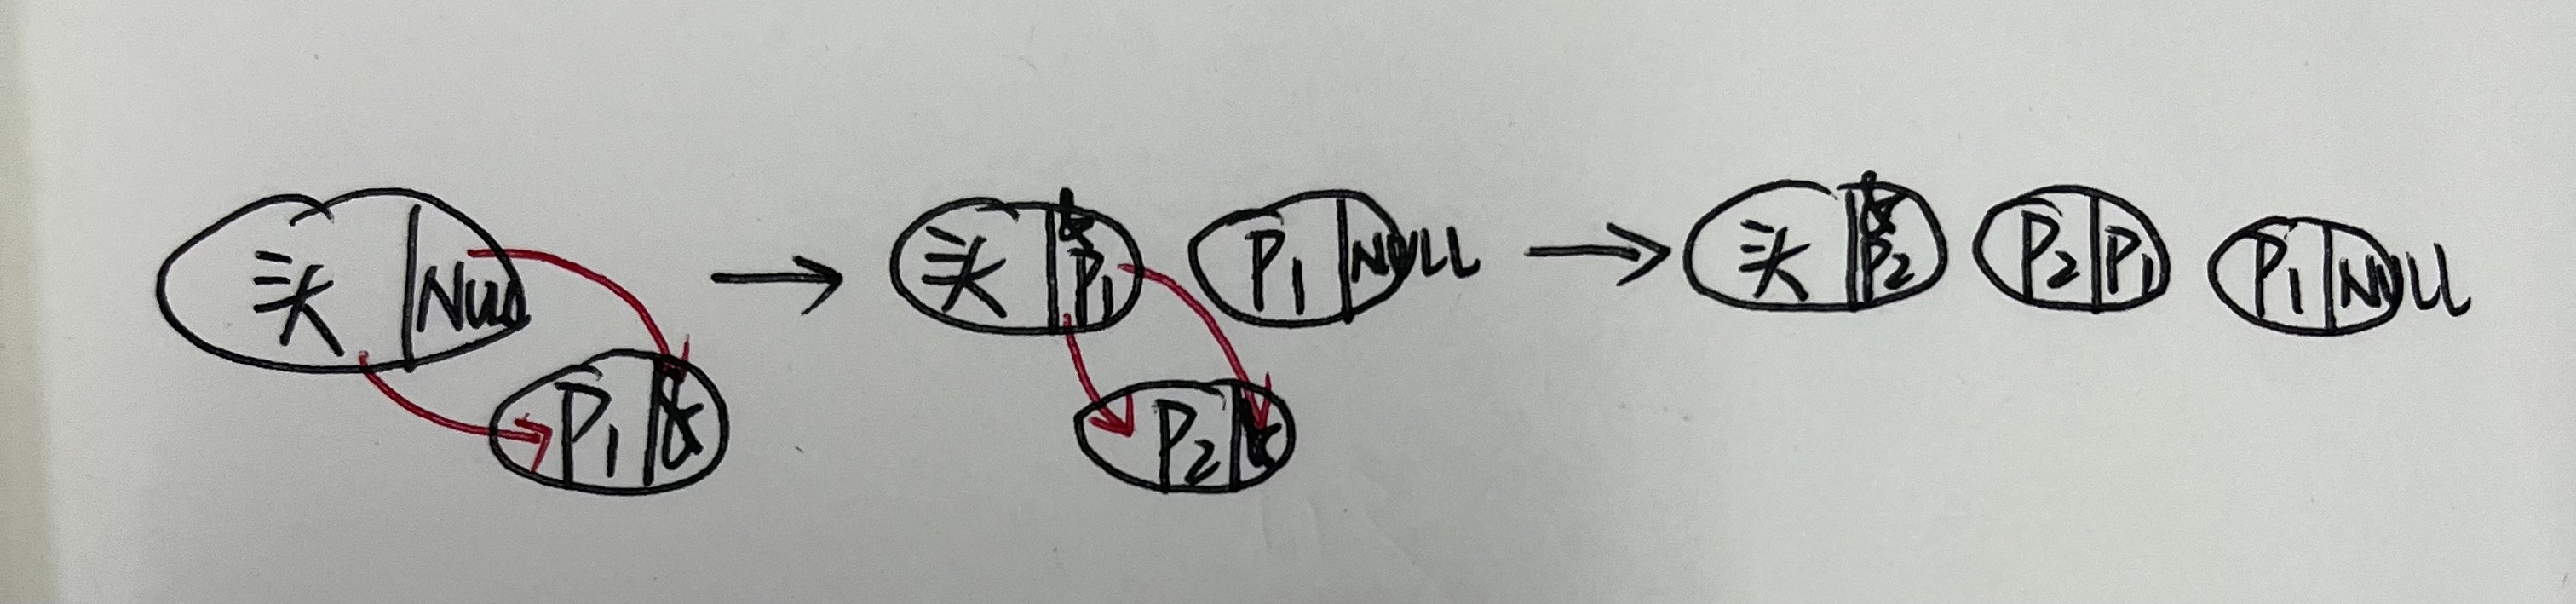 头 Null
P1 &
头 &P1 P1 NULL
P2 &
头 &P2 P2 P1 P1 NULL